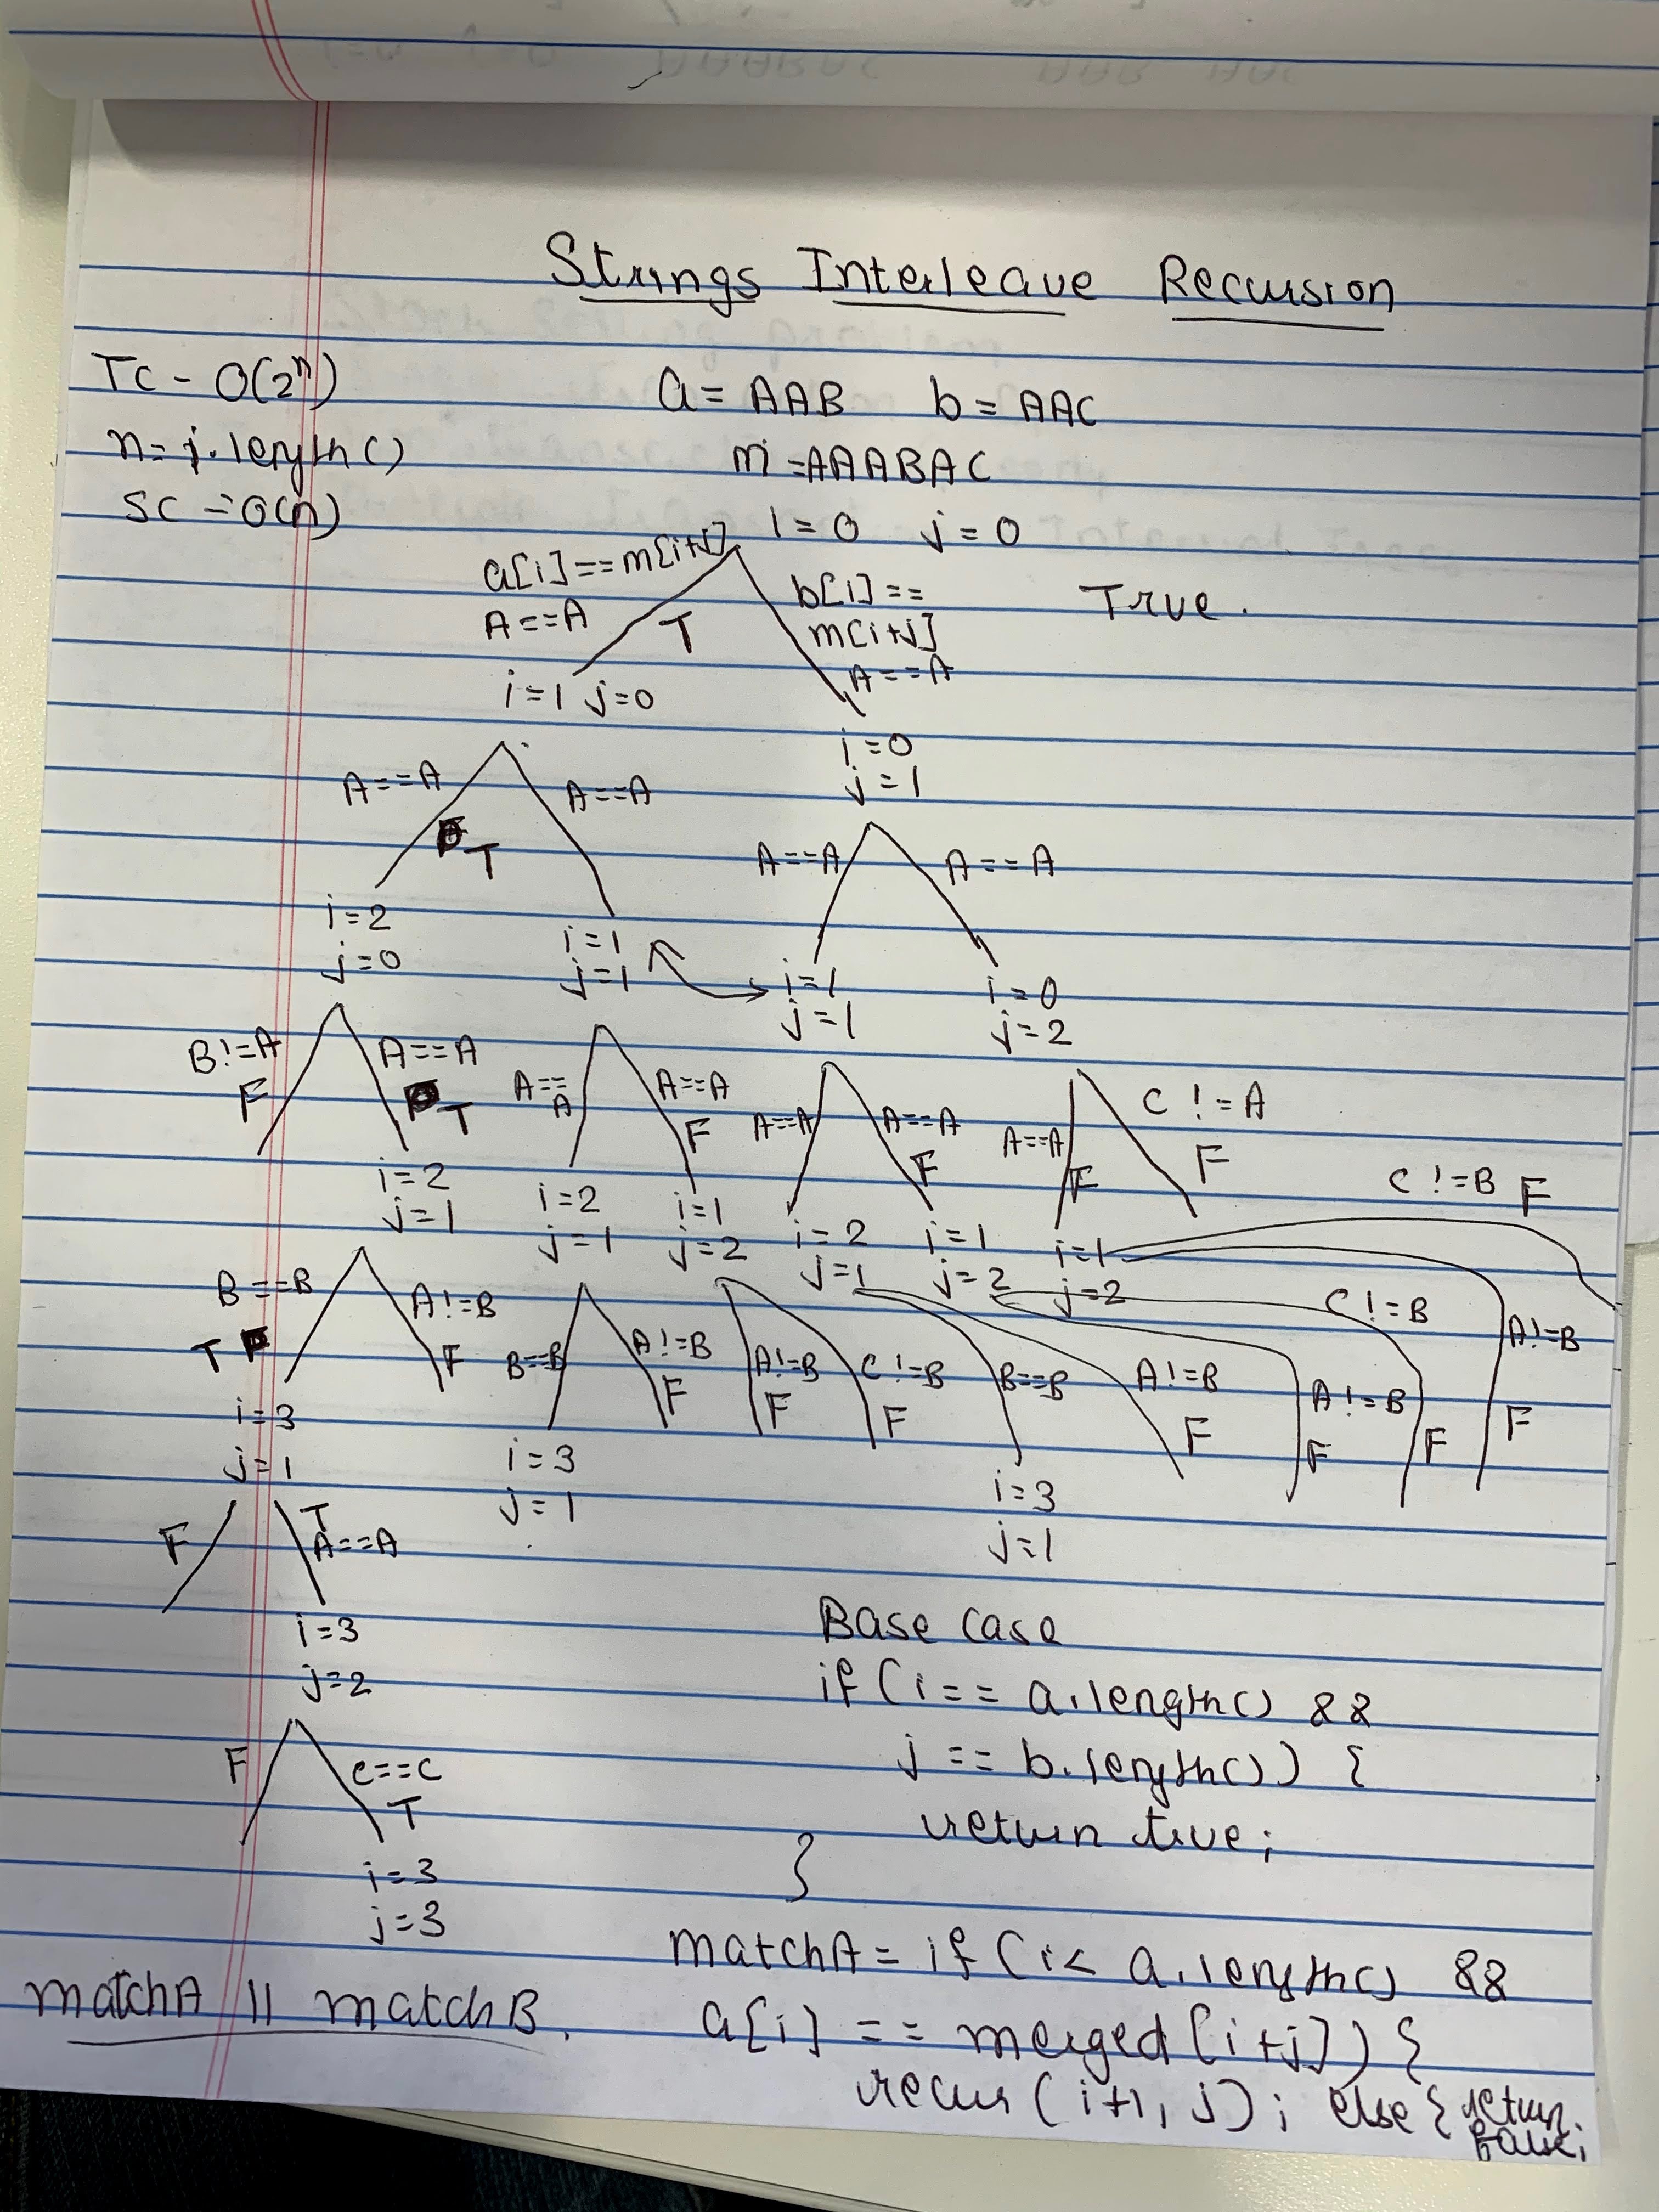 Strings Interleave Recursion
Tc - O(2^n)
a = AAB b = AAC
n = j.length()
m = AAABAC
SC = O(n)
i = 0 j = 0
a[i] == m[i+j]
b[i] ==
True.
A==A
T
m[i+j]
A==A
i=1 j=0
i=0
j=1
A==A
A==A
T
A==A
A==A
i=2
j=0
i=1
j=1
i=1
j=1
i=0
j=2
B!=A
F
A==A
T
A==
A
A==A
F
A==A
A==A
F
A==A
F
C!=A
F
C!=B F
i=2
j=1
i=2
j=1
i=1
j=2
i=2
j=1
i=1
j=2
i=1
j=2
B==B
T
A!=B
F
B==B
A!=B
F
A!=B
F
C!=B
F
B==B
A!=B
F
A!=B
F
C!=B
F
A!=B
F
i=3
j=1
i=3
j=1
i=3
j=1
F
T
A==A
i=3
j=2
Base case
if (i == a.length() &&
j == b.length()) {
return true;
}
F
C==C
T
i=3
j=3
matchA = if (i < a.length() &&
a[i] == merged[i+j]) {
recur(i+1, j); else { return
false;
matchA || matchB.